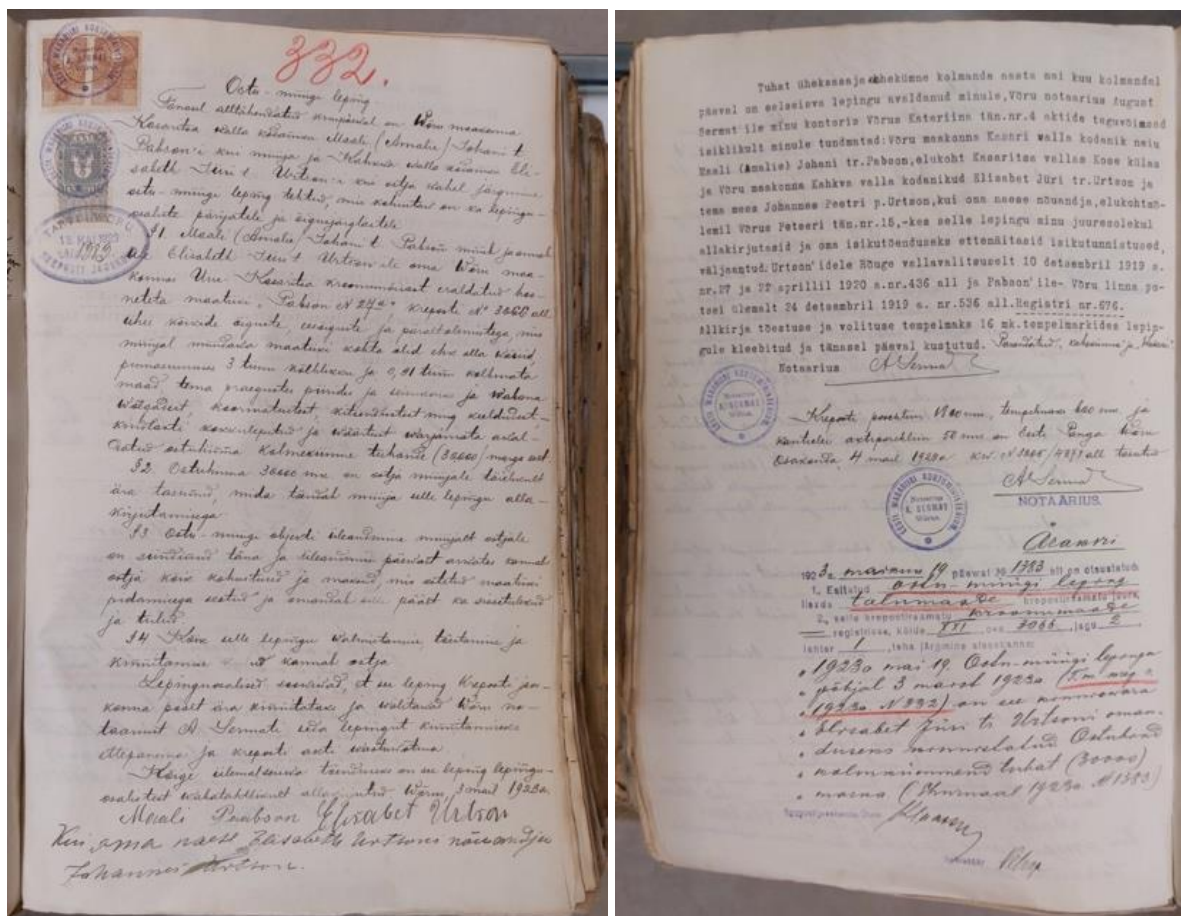 332.
Ostu-müügi leping.
Tänasel alltähendatud kuupäeval on Wõru maakonna
Kasaritsa walla kodaniku Maali (Amalie) Johani t.
Pabson'i kui müüja ja Kahkwa walla kodaniku Eli-
sabeth Jüri t. Urtson'i kui ostja wahel järgmine
ostu-müügi leping tehtud, mis kohustaw on ka lepingu-
osaliste pärijatele ja õigusjärglastele.
§1. Maali (Amalie) Johani t. Pabson müüb ja annab
ära Elisabeth Jüri t. Urtson'ile oma Wõru maa-
konnas Uue-Kasaritsa kroonumõisast eraldatud hoo-
neteta maatüki "Pabson N 27a", kreposti N° 3066 all
ühes kõikide õiguste, eesõiguste ja päraltolemistega, mis
müüjal nimetud maatüki kohta olid ehk olla wõisid,
pinnasuuruses 3 tiinu kõlblikku ja 0,91 tiinu kõlbmata
maad tema praegustes piirides ja seisukorras ja wabana
wõlgadest, koormatustest, kitsendustest ning keeldudest,
kindlasti kokkulepitud ja
ostuhinna kolmekümne tuhande (30000) marga eest.
§2. Ostuhinna 30000 mk. on ostja müüjale täielikult
ära tasunud, mida tõendab müüja selle lepingu alla-
kirjutamisega.
§3. Ostu-müügi objekti üleandmine müüjalt ostjale
on sündinud täna ja üleandmise päewast arwates kannab
ostja kõik kohustused ja maksud, mis ostetud maatüki
pidamisega seotud ja omandab selle päält ka sissetulekud
ja tulud.
§4. Kõik selle lepingu walmistamise, tõestamise ja
kinnitamise kulud kannab ostja.
Lepinguosalised soowiwad, et see leping Kreposti jaos-
konna poolt ära kinnitataks ja wolitawad Wõru no-
taariust A. Sermati seda lepingut kinnitamiseks
ja kreposti akti wastuwõtma.
Kõige ülemalseiswa tõenduseks on see leping lepingu-
osalistest wabatahtlikult allakirjutud Wõrus, 3 mail 1923a.
Maali Pabson Elisabet Urtson
Kui oma naese Elisabeth Urtsoni nõuandja
Johannes Urtson.
Tuhat üheksasaja kahekümne kolmanda aasta mai kuu kolmandal
päeval on eelseisva lepingu avaldanud minule, Võru notaarius August
Sermat'ile minu kontoris Võrus Katariina tän.nr.4 aktide teguvõimsad
isiklikult minule tundmatad: Võru maakonna Kasari walla kodanik neiu
Maali (Amalie) Johani tr.Paboon, elukoht Kasaritsa vallas Kose külas
ja Võru maakonna Kahkva valla kodanikud Elisabet Jüri tr.Urtson ja
tema mees Johannes Peetri p.Urtson, kui oma naese nõuandja, elukoht mõ-
lemil Võrus Petseri tän.nr.15,-kes selle lepingu minu juuresolekul
allakirjutasid ja oma isikutõenduseks ettenäitasid isikutunnistused,
väljaantud: Urtson'idele Rõuge vallavalitsuselt 10 detsembril 1919 a.
nr.27 ja 22 aprillil 1920 a.nr.436 all ja Pabson'ile- Võru linna po-
litsei ülemalt 24 detsembril 1919 a. nr.536 all.Registri nr.676.
Allkirja tõestuse ja volituse tempelmaks 16 mk.tempelmarkides lepin-
gule kleebitud ja tänasel päeval kustutud.
Notaarius A. Sermat
Kreposti poschlin 1200 mk, tempelmaks 200 mk, ja
kantselei aktiposchlin 50 mk on Eesti Panga Wõru
Osakonda, 4 mail 1923a. all tasutud
A. Sermat
NOTAARIUS.
Ärakiri
1923 a. maikuu 19. päewal № 1383 all on otsustatud:
1. Kaitatud ostu-müügi leping
lisada talumaade krepostiraamatu juure,
2. selle krepostiraamatu kroonumaade
registrisse, köide XXI, osa 3066, jagu 2
lahter 1, teha järgmine sissekanne:
"1923a mai 19. Ostu-müügi lepingu
" põhjal 3 maist 1923a. (T.m. mag.
" 1923a. N 332) on see kinniswara
" Elisabet Jüri tr. Urtsoni oman-
" duseks kinnistatud. Ostuhind
" kolmkümmend tuhat (30000)
" marka (Shurnaal 1923a. № 1383)